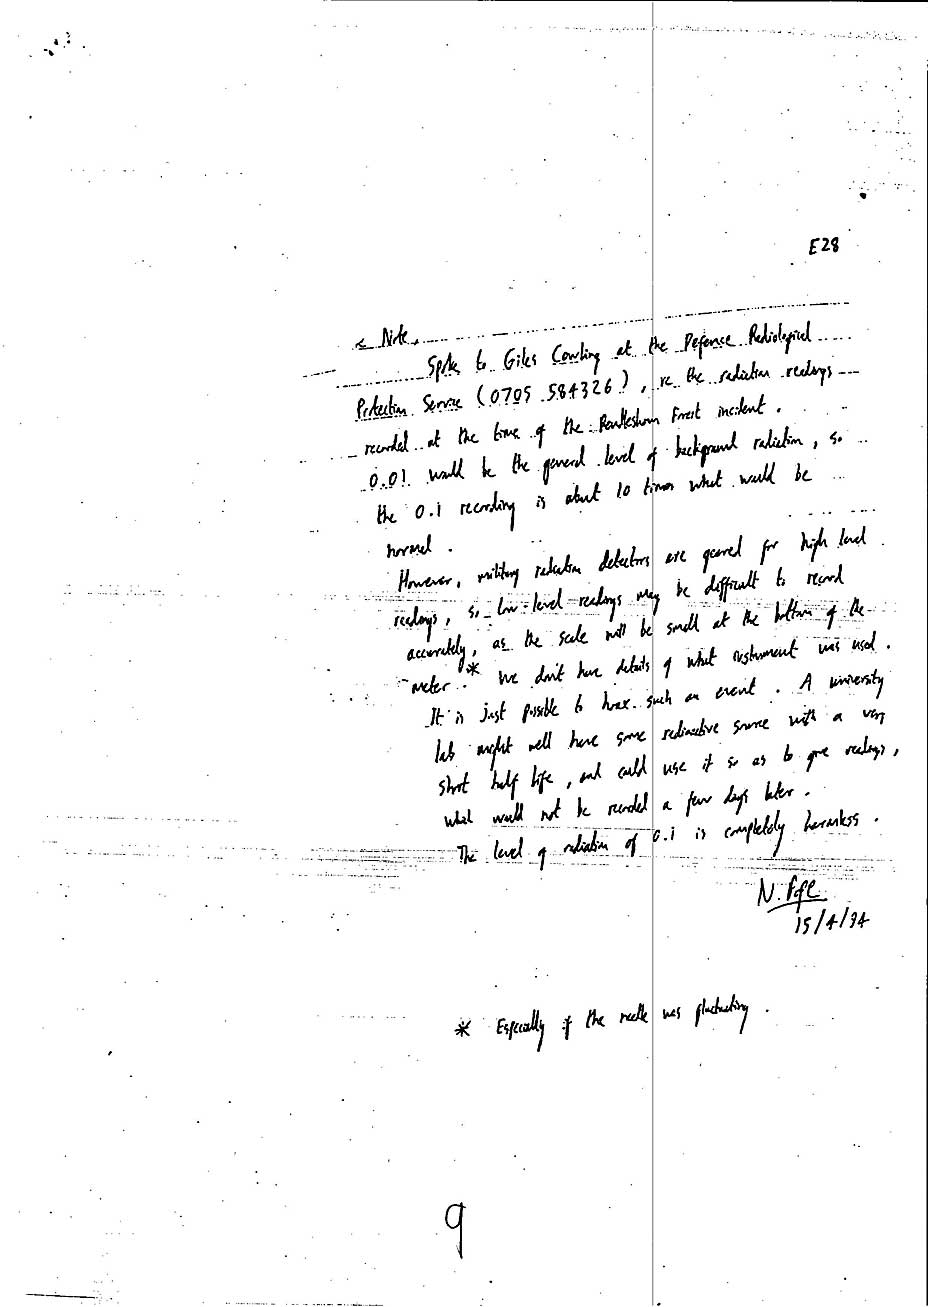 E28
Note.
Spoke to Giles Cowling at the Defence Radiological
Protection Service (0705 584326), re the radiation readings
recorded at the time of the Rendlesham Forest incident.
0.01 would be the general level of background radiation, so
the 0.1 recording is about 10 times what would be
normal.
However, military radiation detectors are geared for high level
readings, so low-level readings may be difficult to record
accurately, as the scale will be small at the bottom of the
meter.* We don't have details of what instrument was used.
It is just possible to hoax such an event. A university
lab might well have some radioactive source with a very
short half life, and could use it so as to give readings,
what would not be recorded a few days later.
The level of radiation of 0.1 is completely harmless.
N. Pope
15/4/94
* Especially if the needle was fluctuating.
9